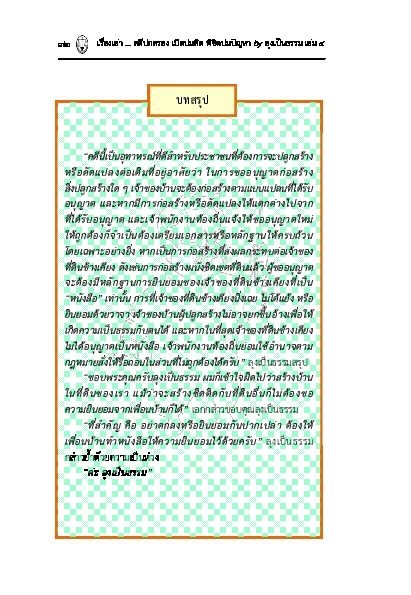 เรื่องเล่า ... คดีปกครอง เปิดปมคิด พิชิตปมปัญหา by ลุงเป็นธรรม เล่ม ๔
บทสรุป
“คดีนี้เป็นอุทาหรณ์ที่ดีสำหรับประชาชนที่ต้องการจะปลูกสร้าง
หรือดัดแปลงต่อเติมที่อยู่อาศัยว่า ในการขออนุญาตก่อสร้าง
สิ่งปลูกสร้างใด ๆ เจ้าของบ้านจะต้องก่อสร้างตามแบบแปลนที่ได้รับ
อนุญาต และหากมีการก่อสร้างหรือดัดแปลงให้แตกต่างไปจาก
ที่ได้รับอนุญาต และเจ้าพนักงานท้องถิ่นแจ้งให้ขออนุญาตใหม่
ให้ถูกต้องก็จำเป็นต้องเตรียมเอกสารหรือหลักฐานให้ครบถ้วน
โดยเฉพาะอย่างยิ่ง หากเป็นการก่อสร้างที่ส่งผลกระทบต่อเจ้าของ
ที่ดินข้างเคียง ดังเช่นการก่อสร้างผนังชิดเขตที่ดินแล้ว ผู้ขออนุญาต
จะต้องมีหลักฐานการยินยอมของเจ้าของที่ดินข้างเคียงที่เป็น
“หนังสือ” เท่านั้น การที่เจ้าของที่ดินข้างเคียงนิ่งเฉย ไม่โต้แย้ง หรือ
ยินยอมด้วยวาจา เจ้าของบ้านผู้ปลูกสร้างไม่อาจยกขึ้นอ้างเพื่อให้
เกิดความเป็นธรรมกับตนได้ และหากในที่สุดเจ้าของที่ดินข้างเคียง
ไม่ได้อนุญาตเป็นหนังสือ เจ้าพนักงานท้องถิ่นย่อมใช้อำนาจตาม
กฎหมายสั่งให้รื้อถอนในส่วนที่ไม่ถูกต้องได้ครับ” ลุงเป็นธรรมสรุป
“ขอบพระคุณครับลุงเป็นธรรม ผมก็เข้าใจผิดไปว่าสร้างบ้าน
ในที่ดินของเรา แม้ว่าจะสร้างชิดติดกับที่ดินอื่นก็ไม่ต้องขอ
ความยินยอมจากเพื่อนบ้านก็ได้” เอกกล่าวขอบคุณลุงเป็นธรรม
“ที่สำคัญ คือ อย่าตกลงหรือยินยอมกันปากเปล่า ต้องให้
เพื่อนบ้านทำหนังสือให้ความยินยอมไว้ด้วยครับ” ลุงเป็นธรรม
กล่าวย้ำด้วยความเป็นห่วง
ลุงเป็นธรรม”